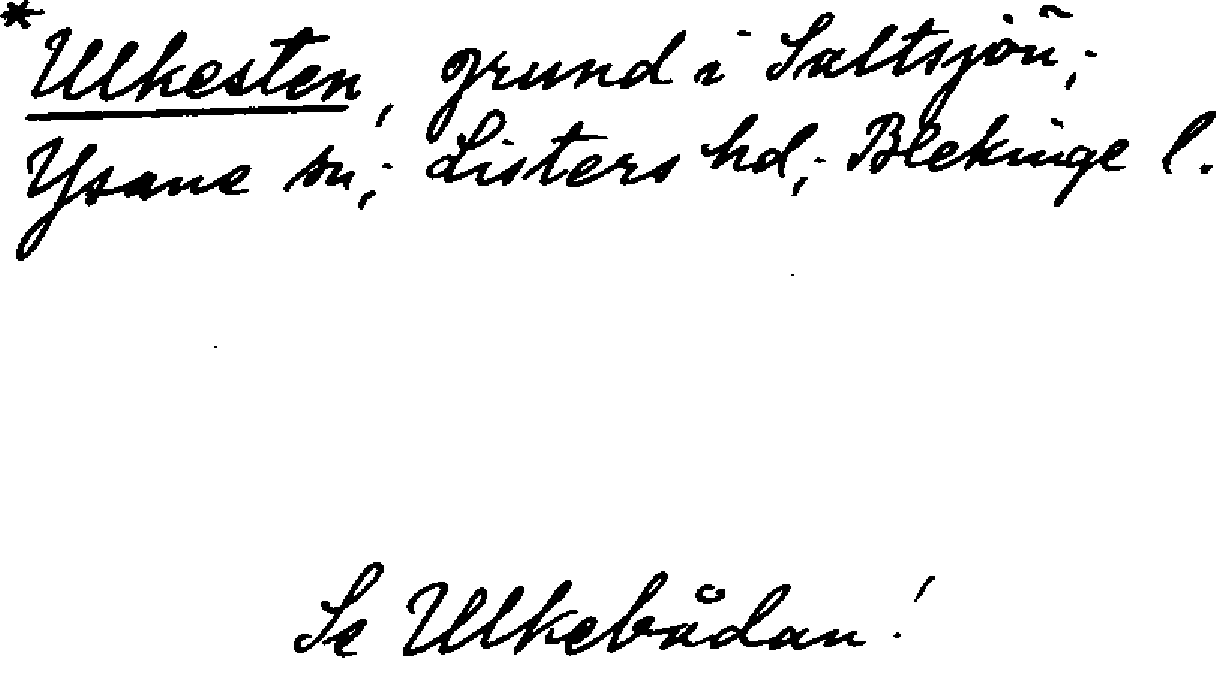 *Ulkesten, grund i Saltsjön;
Ysane sn; Listers hd; Blekinge l.
Se Ulkebådan!